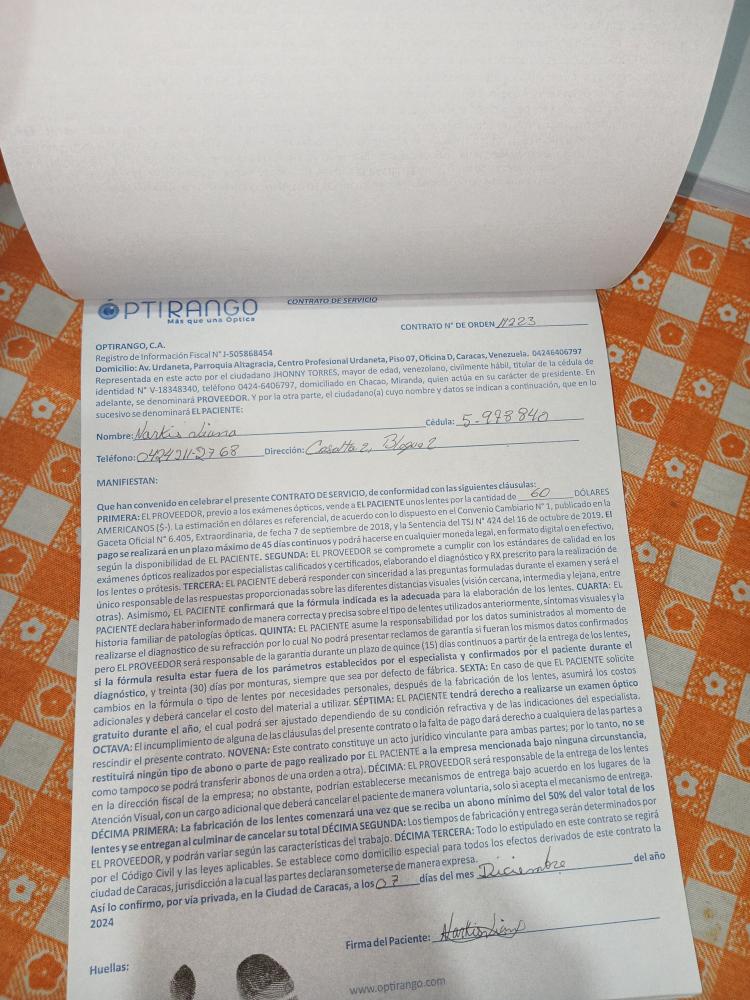 ÓPTIRANGO
Más que una Óptica
CONTRATO DE SERVICIO
CONTRATO N° DE ORDEN 11223
OPTIRANGO, C.A.
Registro de Información Fiscal N° J-505868454
Domicilio: Av. Urdaneta, Parroquia Altagracia, Centro Profesional Urdaneta, Piso 07, Oficina D, Caracas, Venezuela. 04246406797
Representada en este acto por el ciudadano JHONNY TORRES, mayor de edad, venezolano, civilmente hábil, titular de la cédula de
identidad N° V-18348340, teléfono 0424-6406797, domiciliado en Chacao, Miranda, quien actúa en su carácter de presidente. En
adelante, se denominará PROVEEDOR. Y por la otra parte, el ciudadano(a) cuyo nombre y datos se indican a continuación, que en lo
sucesivo se denominará EL PACIENTE:
Nombre: Narkis Cédula: 5.978840
Teléfono: 0424211-2768 Dirección: Casalta 2, Bloque 2
MANIFIESTAN:
Que han convenido en celebrar el presente CONTRATO DE SERVICIO, de conformidad con las siguientes cláusulas:
PRIMERA: EL PROVEEDOR, previo a los exámenes ópticos, vende a EL PACIENTE unos lentes por la cantidad de 60 DÓLARES
AMERICANOS ($-). La estimación en dólares es referencial, de acuerdo con lo dispuesto en el Convenio Cambiario N° 1, publicado en la
Gaceta Oficial N° 6.405, Extraordinaria, de fecha 7 de septiembre de 2018, y la Sentencia del TSJ N° 424 del 16 de octubre de 2019. El
pago se realizará en un plazo máximo de 45 días continuos y podrá hacerse en cualquier moneda legal, en formato digital o en efectivo,
según la disponibilidad de EL PACIENTE. SEGUNDA: EL PROVEEDOR se compromete a cumplir con los estándares de calidad en los
exámenes ópticos realizados por especialistas calificados y certificados, elaborando el diagnóstico y RX prescrito para la realización de
los lentes o prótesis. TERCERA: EL PACIENTE deberá responder con sinceridad a las preguntas formuladas durante el examen y será el
único responsable de las respuestas proporcionadas sobre las diferentes distancias visuales (visión cercana, intermedia y lejana, entre
otras). Asimismo, EL PACIENTE confirmará que la fórmula indicada es la adecuada para la elaboración de los lentes. CUARTA: EL
PACIENTE declara haber informado de manera correcta y precisa sobre el tipo de lentes utilizados anteriormente, síntomas visuales y la
historia familiar de patologías ópticas. QUINTA: EL PACIENTE asume la responsabilidad por los datos suministrados al momento de
realizarse el diagnostico de su refracción por lo cual No podrá presentar reclamos de garantía si fueran los mismos datos confirmados
pero EL PROVEEDOR será responsable de la garantía durante un plazo de quince (15) días continuos a partir de la entrega de los lentes,
si la fórmula resulta estar fuera de los parámetros establecidos por el especialista y confirmados por el paciente durante el
diagnóstico, y treinta (30) días por monturas, siempre que sea por defecto de fábrica. SEXTA: En caso de que EL PACIENTE solicite
cambios en la fórmula o tipo de lentes por necesidades personales, después de la fabricación de los lentes, asumirá los costos
adicionales y deberá cancelar el costo del material a utilizar. SÉPTIMA: EL PACIENTE tendrá derecho a realizarse un examen óptico
gratuito durante el año, el cual podrá ser ajustado dependiendo de su condición refractiva y de las indicaciones del especialista.
OCTAVA: El incumplimiento de alguna de las cláusulas del presente contrato o la falta de pago dará derecho a cualquiera de las partes a
rescindir el presente contrato. NOVENA: Este contrato constituye un acto jurídico vinculante para ambas partes; por lo tanto, no se
restituirá ningún tipo de abono o parte de pago realizado por EL PACIENTE a la empresa mencionada bajo ninguna circunstancia,
como tampoco se podrá transferir abonos de una orden a otra). DÉCIMA: EL PROVEEDOR será responsable de la entrega de los lentes
en la dirección fiscal de la empresa; no obstante, podrían establecerse mecanismos de entrega bajo acuerdo en los lugares de la
Atención Visual, con un cargo adicional que deberá cancelar el paciente de manera voluntaria, solo si acepta el mecanismo de entrega.
DÉCIMA PRIMERA: La fabricación de los lentes comenzará una vez que se reciba un abono mínimo del 50% del valor total de los
lentes y se entregan al culminar de cancelar su total DÉCIMA SEGUNDA: Los tiempos de fabricación y entrega serán determinados por
EL PROVEEDOR, y podrán variar según las características del trabajo. DÉCIMA TERCERA: Todo lo estipulado en este contrato se regirá
por el Código Civil y las leyes aplicables. Se establece como domicilio especial para todos los efectos derivados de este contrato la
ciudad de Caracas, jurisdicción a la cual las partes declaran someterse de manera expresa.
Así lo confirmo, por vía privada, en la Ciudad de Caracas, a los 07 días del mes Diciembre del año
2024
Firma del Paciente:
Huellas:
www.optirango.com